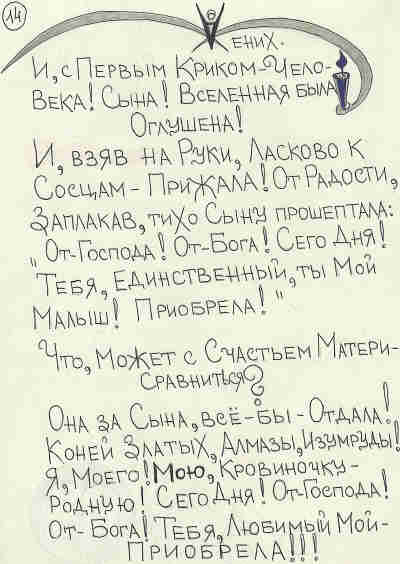 14
ених.
И, с Первым Криком-Чело-
века! Сына! Вселенная была
Оглушена!
И, взяв на Руки, Ласково к
Сосцам - Прижала! От Радости,
Заплакав, тихо Сыну прошептала:
„От-Господа! От-Бога! Сего Дня!
Тебя, Единственный, ты Мой
Малыш! Приобрела!"
Что, может с Счастьем Матери-
Сравниться?
Она за Сына, всё-бы-Отдала!
Коней Златых, Алмазы, Изумруды!
Я, Моего! Мою, Кровиночку-
Родную! Сего Дня! От-Господа!
От-Бога! Тебя, Любимый Мой-
Приобрела!!!